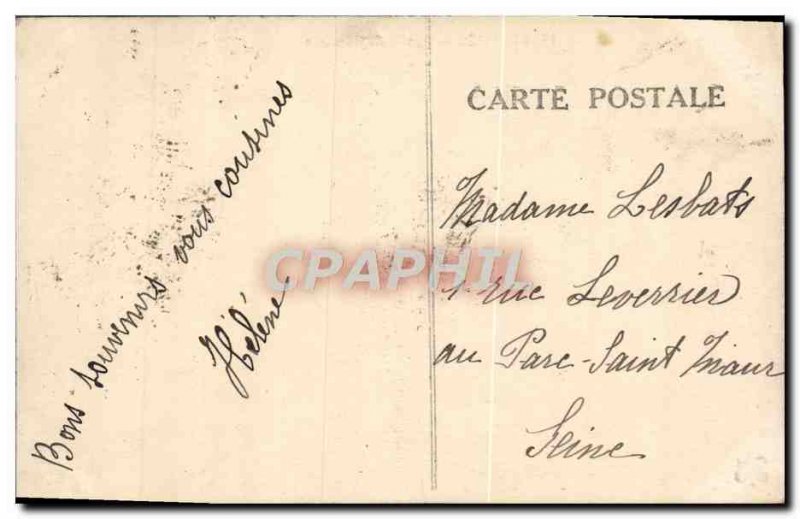 Bons souvenirs vous cousines
Hélène
CARTE POSTALE
Madame Lesbats
1 rue Leverrier
au Parc-Saint Maur
Seine
CPAPHIL